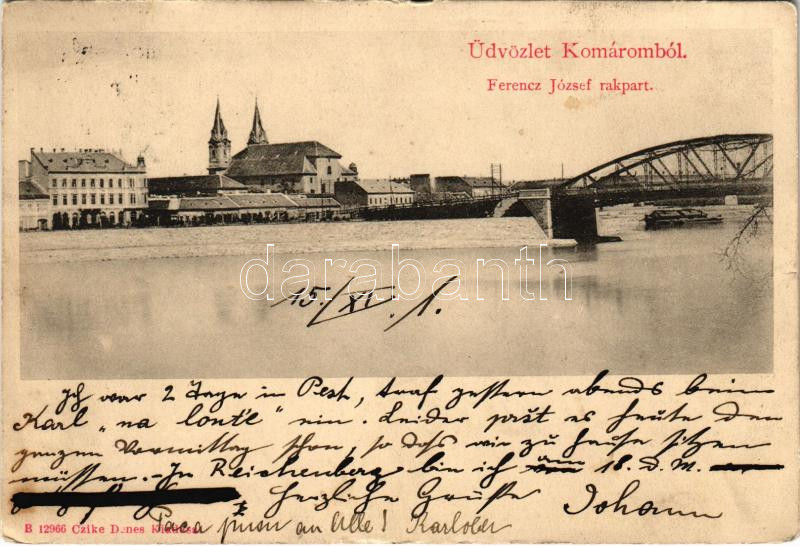 Üdvözlet Komáromból.
Ferencz József rakpart.
darabanth
15./XI./1.
Ich war 2 Tage in Pest, traf gestern abends beim
Karl "na lontě" ein. Leider gießt es heute den
ganzen Vormittag schon, so daß wir zu hause sitzen
müssen. - In Reichenberg bin ich am 18. d. M.
herzliche Grüße Johann
B 12966 Czike Dénes Kiadása
an Alle! Karlober